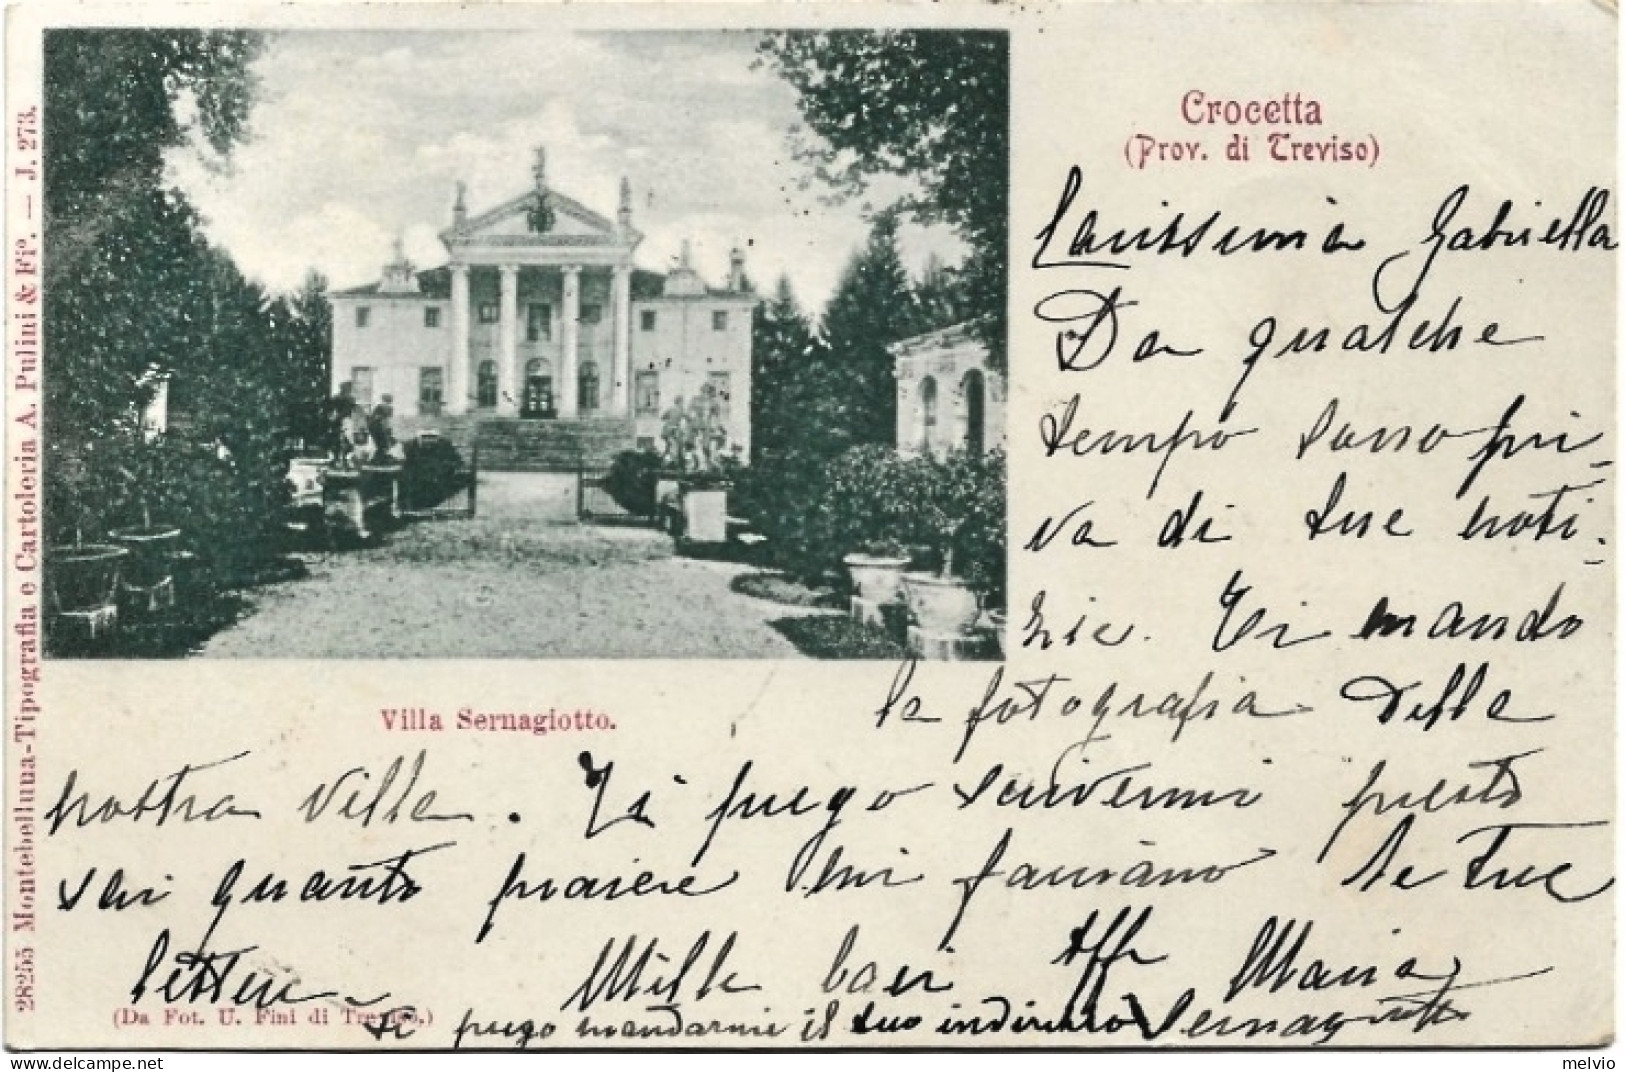 28255 Montebelluna-Tipografia e Cartoleria A. Pulini & Fi°. — J. 273.
Crocetta
(Prov. di Treviso)
Carissima Gabriella
Da qualche
tempo sono pri-
va di tue noti-
zie. Ti mando
la fotografia della
Villa Sernagiotto.
nostra villa. Ti prego scrivermi presto
sai quanto piacere mi facciano le tue
lettere Mille baci Aff Maria
(Da Fot. U. Fini di Treviso.)
Ti prego mandarmi il tuo indirizzo Sernagiotto
melvio